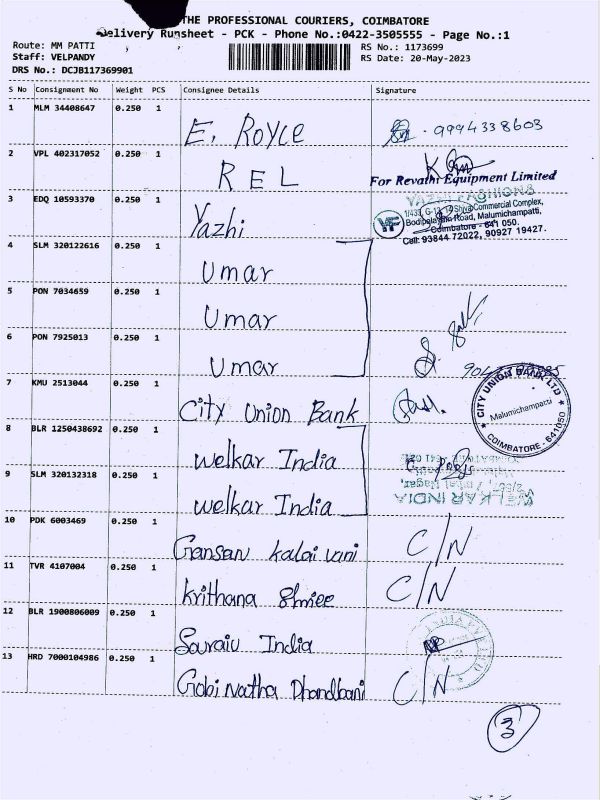 THE PROFESSIONAL COURIERS, COIMBATORE
Delivery Runsheet - PCK - Phone No.:0422-3505555 - Page No.:1
Route: MM PATTI RS No.: 1173699
Staff: VELPANDY RS Date: 20-May-2023
DRS No.: DCJB117369901
S No Consignment No Weight PCS Consignee Details Signature
1 MLM 34408647 0.250 1 E. Royce 9994338603
2 VPL 402317052 0.250 1 REL
For Revathi Equipment Limited
3 EDQ 10593370 0.250 1 Yazhi
YAZHI FASHIONS
Shiva Commercial Complex,
Road, Malumichampatti,
Coimbatore - 641 050.
Cell: 93844 72022, 90927 19427.
4 SLM 320122616 0.250 1 Umar
5 PON 7034659 0.250 1 Umar
6 PON 7925013 0.250 1 Umar
7 KMU 2513044 0.250 1 City Union Bank
CITY UNION BANK LTD
Malumichampatti
COIMBATORE - 641050
8 BLR 1250438692 0.250 1 Welkar India
9 SLM 320132318 0.250 1 Welkar India
WELKAR INDIA
10 PDK 6003469 0.250 1 Gansan kalai vani C/N
11 TVR 4107004 0.250 1 Krithana Shriee C/N
12 BLR 1900806009 0.250 1 Souraiu India
13 HRD 7000104986 0.250 1 Gobi Natha Dhandbani C/N
3